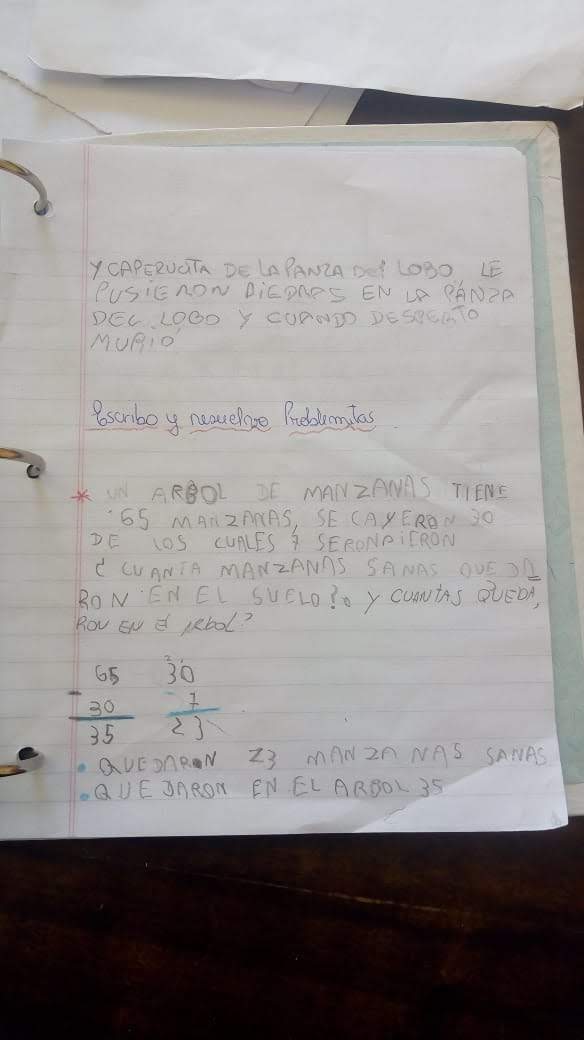 Y CAPERUCITA DE LA PANZA DEL LOBO, LE
PUSIERON PIEDRAS EN LA PANZA
DEL LOBO Y CUANDO DESPERTO
MURIO
Escribo y resuelvo Problemitas.
* UN ARBOL DE MANZANAS TIENE
65 MANZANAS, SE CAYERON 30
DE LOS CUALES 7 SE ROMPIERON
¿CUANTA MANZANAS SANAS QUEDA
RON EN EL SUELO? Y CUANTAS QUEDA,
RON EN El ARbOL?
65 30
- 30 - 7
35 23
• QUEDARON 23 MANZANAS SANAS
• QUEDARON EN EL ARBOL 35